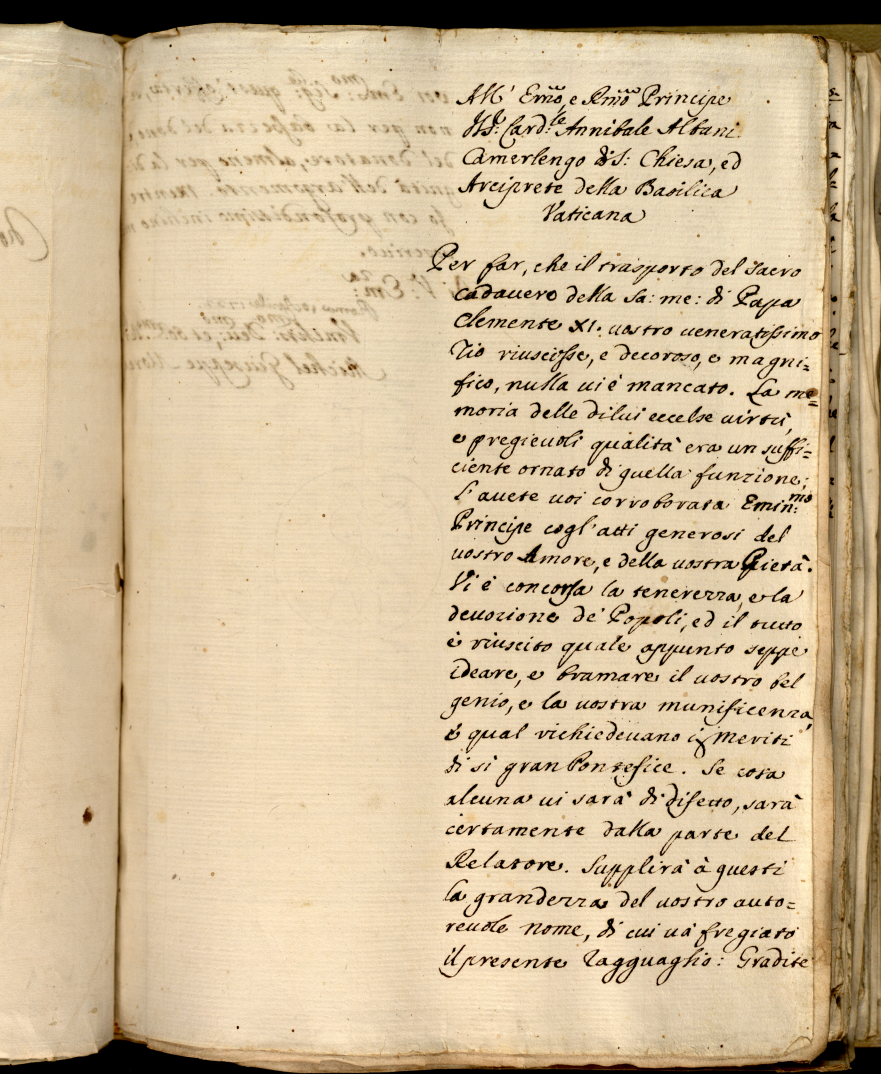 All' Emo͞, e Rmo͞ Principe
Il Sr: Card:le Annibale Albani
Camerlengo di S: Chiesa, ed
Arciprete della Basilica
Vaticana
Per far, che il trasporto del sacro
cadavero della sa: me: di Papa
Clemente XI. vostro veneratissimo
Zio riuscisse, e decoroso, e magni=
fico, nulla vi è mancato. La me=
moria delle di lui eccelse virtù,
e pregievoli qualità era un suffi=
ciente ornato di quella funzione;
L'avete voi corroborata Emin:mo
Principe cogl'atti generosi del
vostro Amore, e della vostra Pietà.
Vi è concorsa la tenerezza, e la
devozione de' Popoli, ed il tutto
è riuscito quale appunto seppe
ideare, e bramare il vostro bel
genio, e la vostra munificenza,
e qual richiedevano i Meriti
di si gran Pontefice. Se cosa
alcuna vi sarà di difetto, sarà
certamente dalla parte del
Relatore. Supplirà à questi
la grandezza del vostro auto=
revole nome, di cui và fregiato
il presente Ragguaglio: Gradite